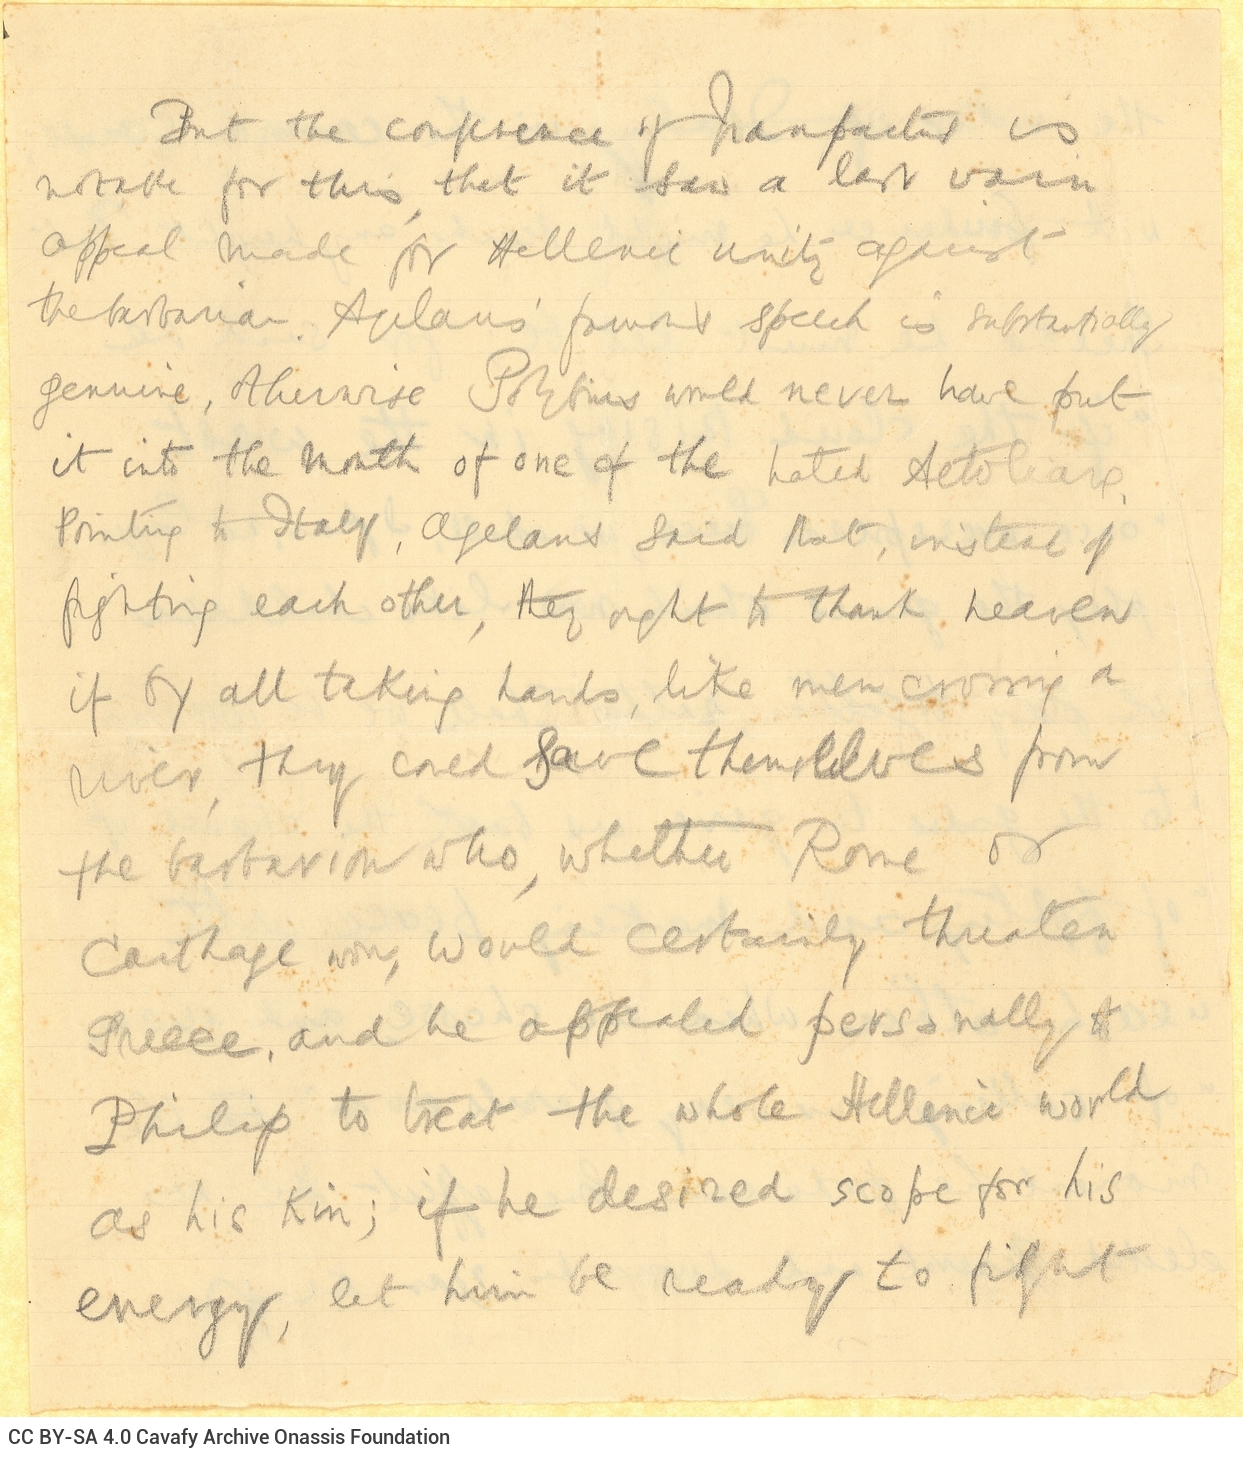 But the conference of Naupactus is
notable for this, that it saw a last vain
appeal made for Hellenic unity against
the barbarian. Agelaus' famous speech is substantially
genuine, otherwise Polybius would never have put
it into the mouth of one of the hated Aetolians.
Pointing to Italy, Agelaus said that, instead of
fighting each other, they ought to thank heaven
if by all taking hands, like men crossing a
river, they could save themselves from
the barbarian who, whether Rome or
Carthage won, would certainly threaten
Greece, and he appealed personally to
Philip to treat the whole Hellenic world
as his kin; if he desired scope for his
energy, let him be ready to fight
CC BY-SA 4.0 Cavafy Archive Onassis Foundation